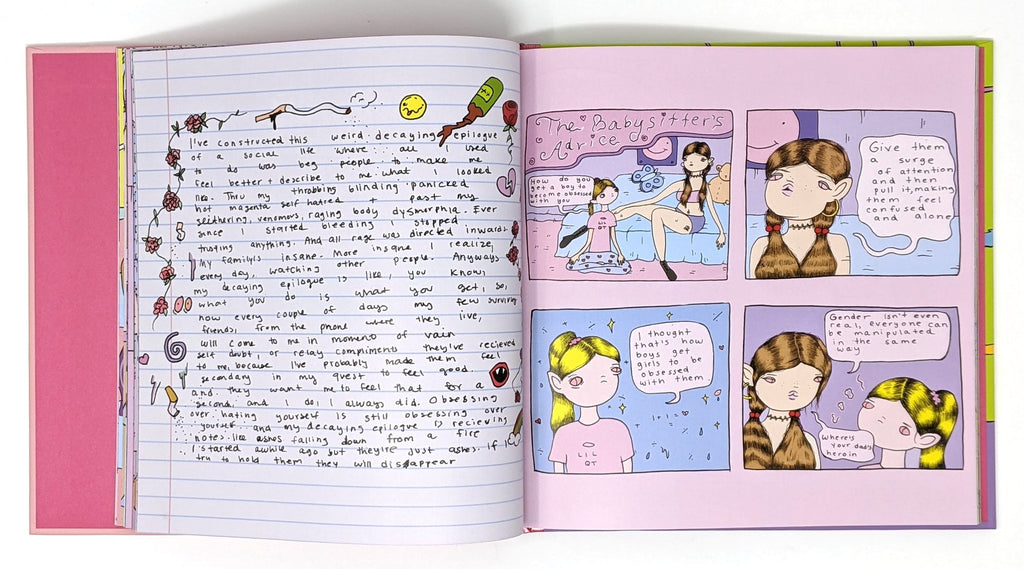 I've constructed this weird decaying epilogue
of a social life where all I used
to do was beg people to make me
feel better + describe to me what I looked
like. Thru my throbbing blinding panicked
hot magenta self hatred + past my
slethering, venomors, raging body dysmorphia. Ever
since I started bleeding I stopped
trusting anything. And all rage was directed inwards.
My family's insane. More insane I realize,
every day, watching other people. Anyways
my decaying epilogue is like, you know
what you do is what you get, so,
now every couple of days my few surviving
friends, from the phone where they live,
will come to me in moments of vain
self doubt, or relay compliments they've recieved
to me because I've probably made them feel
secondary in my quest to feel good.
and they want me to feel that for a
second and I do, I always did. Obsessing
over hating yourself is still obsessing over
yourself and my decaying epilogue is recieving
notes like ashes falling down from a fire
I started awhile ago but they're just ashes. if I
try to hold them they will disappear
The Babysitter's
Advice
How do you
get a boy to
become obsessed
with you
LIL
QT
Give them
a surge
of attention
and then
pull it, making
them feel
confused
and alone
I thought
that's how
boys get
girls to be
obsessed
with them
1+1=
LIL
QT
Gender isn't even
real, everyone can
be manipulated
in the same
way
Where's
your dad's
heroin